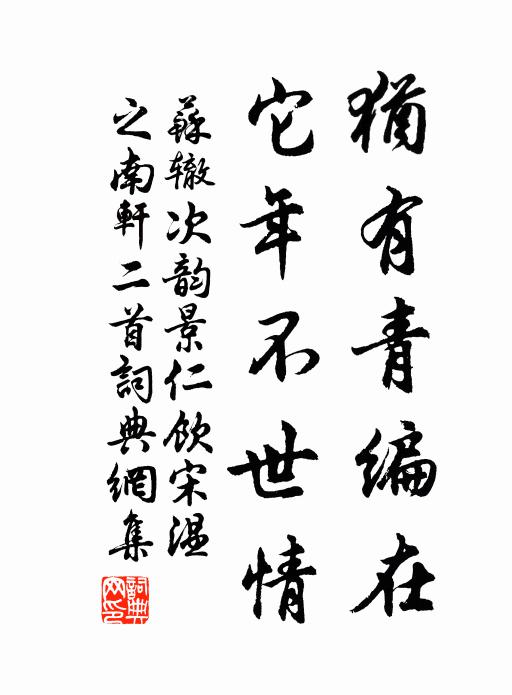 猶有青編在
它年不世情
蘇辙次韵景仁飲宋温
之南軒二首詞典網集
詞典网印